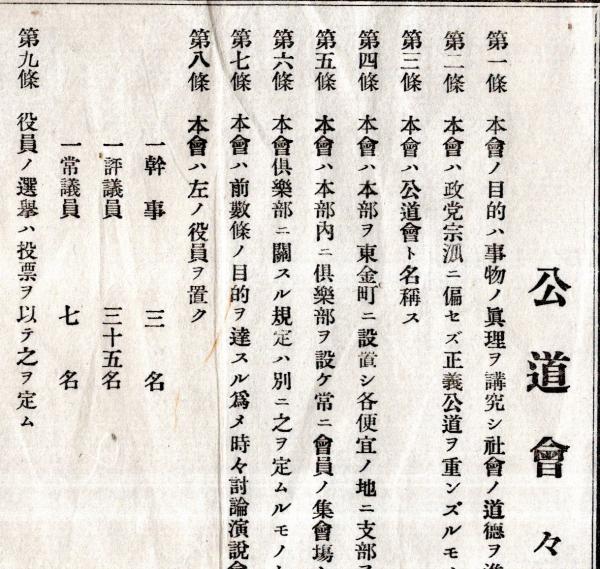 公道會々
第一條 本會ノ目的ハ事物ノ眞理ヲ講究シ社會ノ道德ヲ進
第二條 本會ハ政党宗派ニ偏セズ正義公道ヲ重ンズルモ
第三條 本會ハ公道會ト名稱ス
第四條 本會ハ本部ヲ東金町ニ設置シ各便宜ノ地ニ支部ヲ
第五條 本會ハ本部內ニ俱樂部ヲ設ケ常ニ會員ノ集會塲
第六條 本會俱樂部ニ關スル規定ハ別ニ之ヲ定ムルモノ
第七條 本會ハ前數條ノ目的ヲ達スル爲メ時々討論演說會
第八條 本會ハ左ノ役員ヲ置ク
一幹事 三名
一評議員 三十五名
一常議員 七名
第九條 役員ノ選擧ハ投票ヲ以テ之ヲ定ム